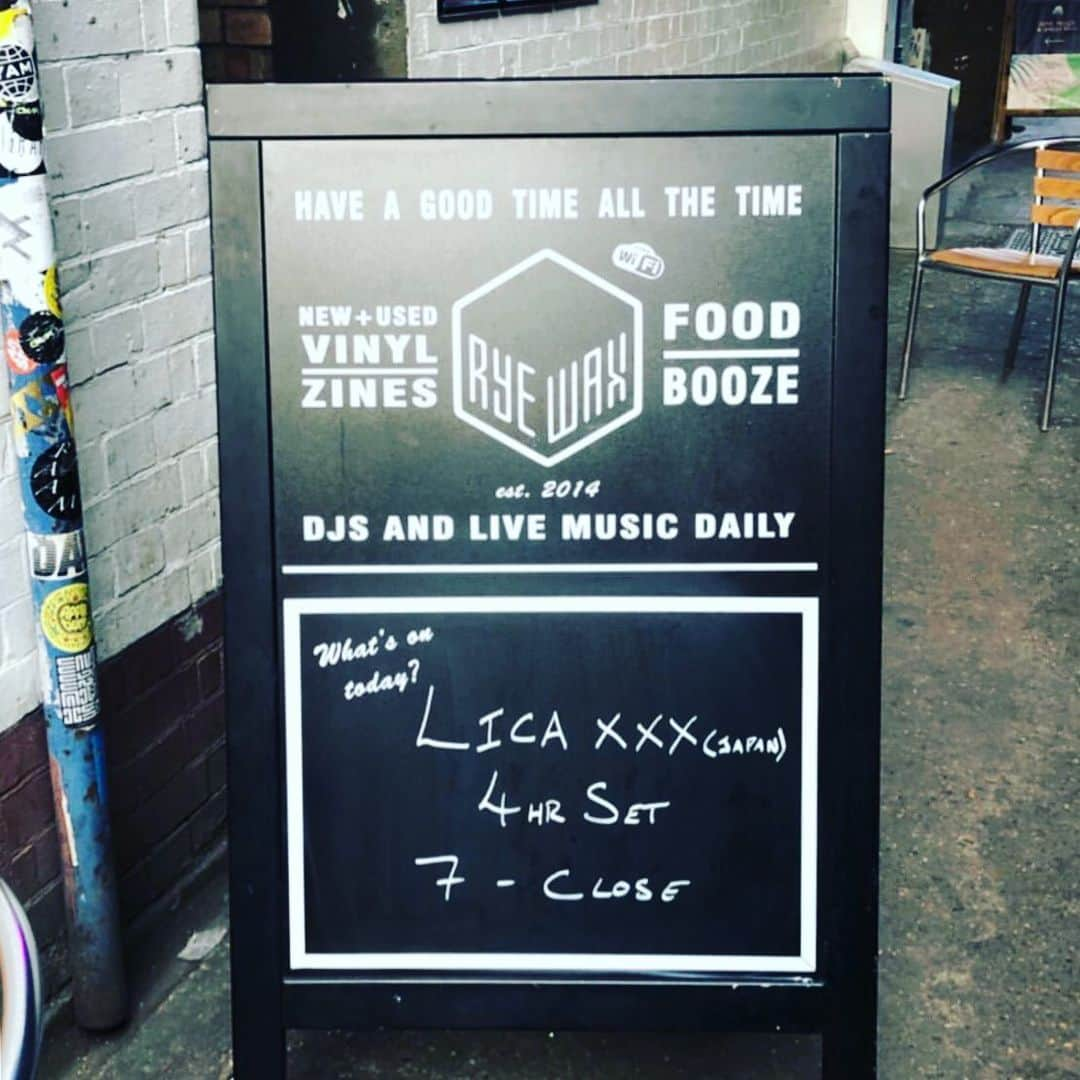 HAVE A GOOD TIME ALL THE TIME
WiFi
NEW+USED
VINYL
ZINES
RYE WAX
FOOD
BOOZE
est. 2014
DJS AND LIVE MUSIC DAILY
What's on
today?
LICA XXX (JAPAN)
4HR SET
7 - CLOSE